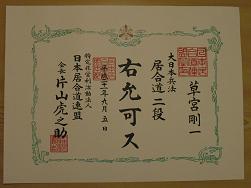 草宮剛一
大日本兵法
居合道二段
右允可ス
平成二十一年九月五日
特定非営利活動法人
日本居合道連盟
会長 片山虎之助